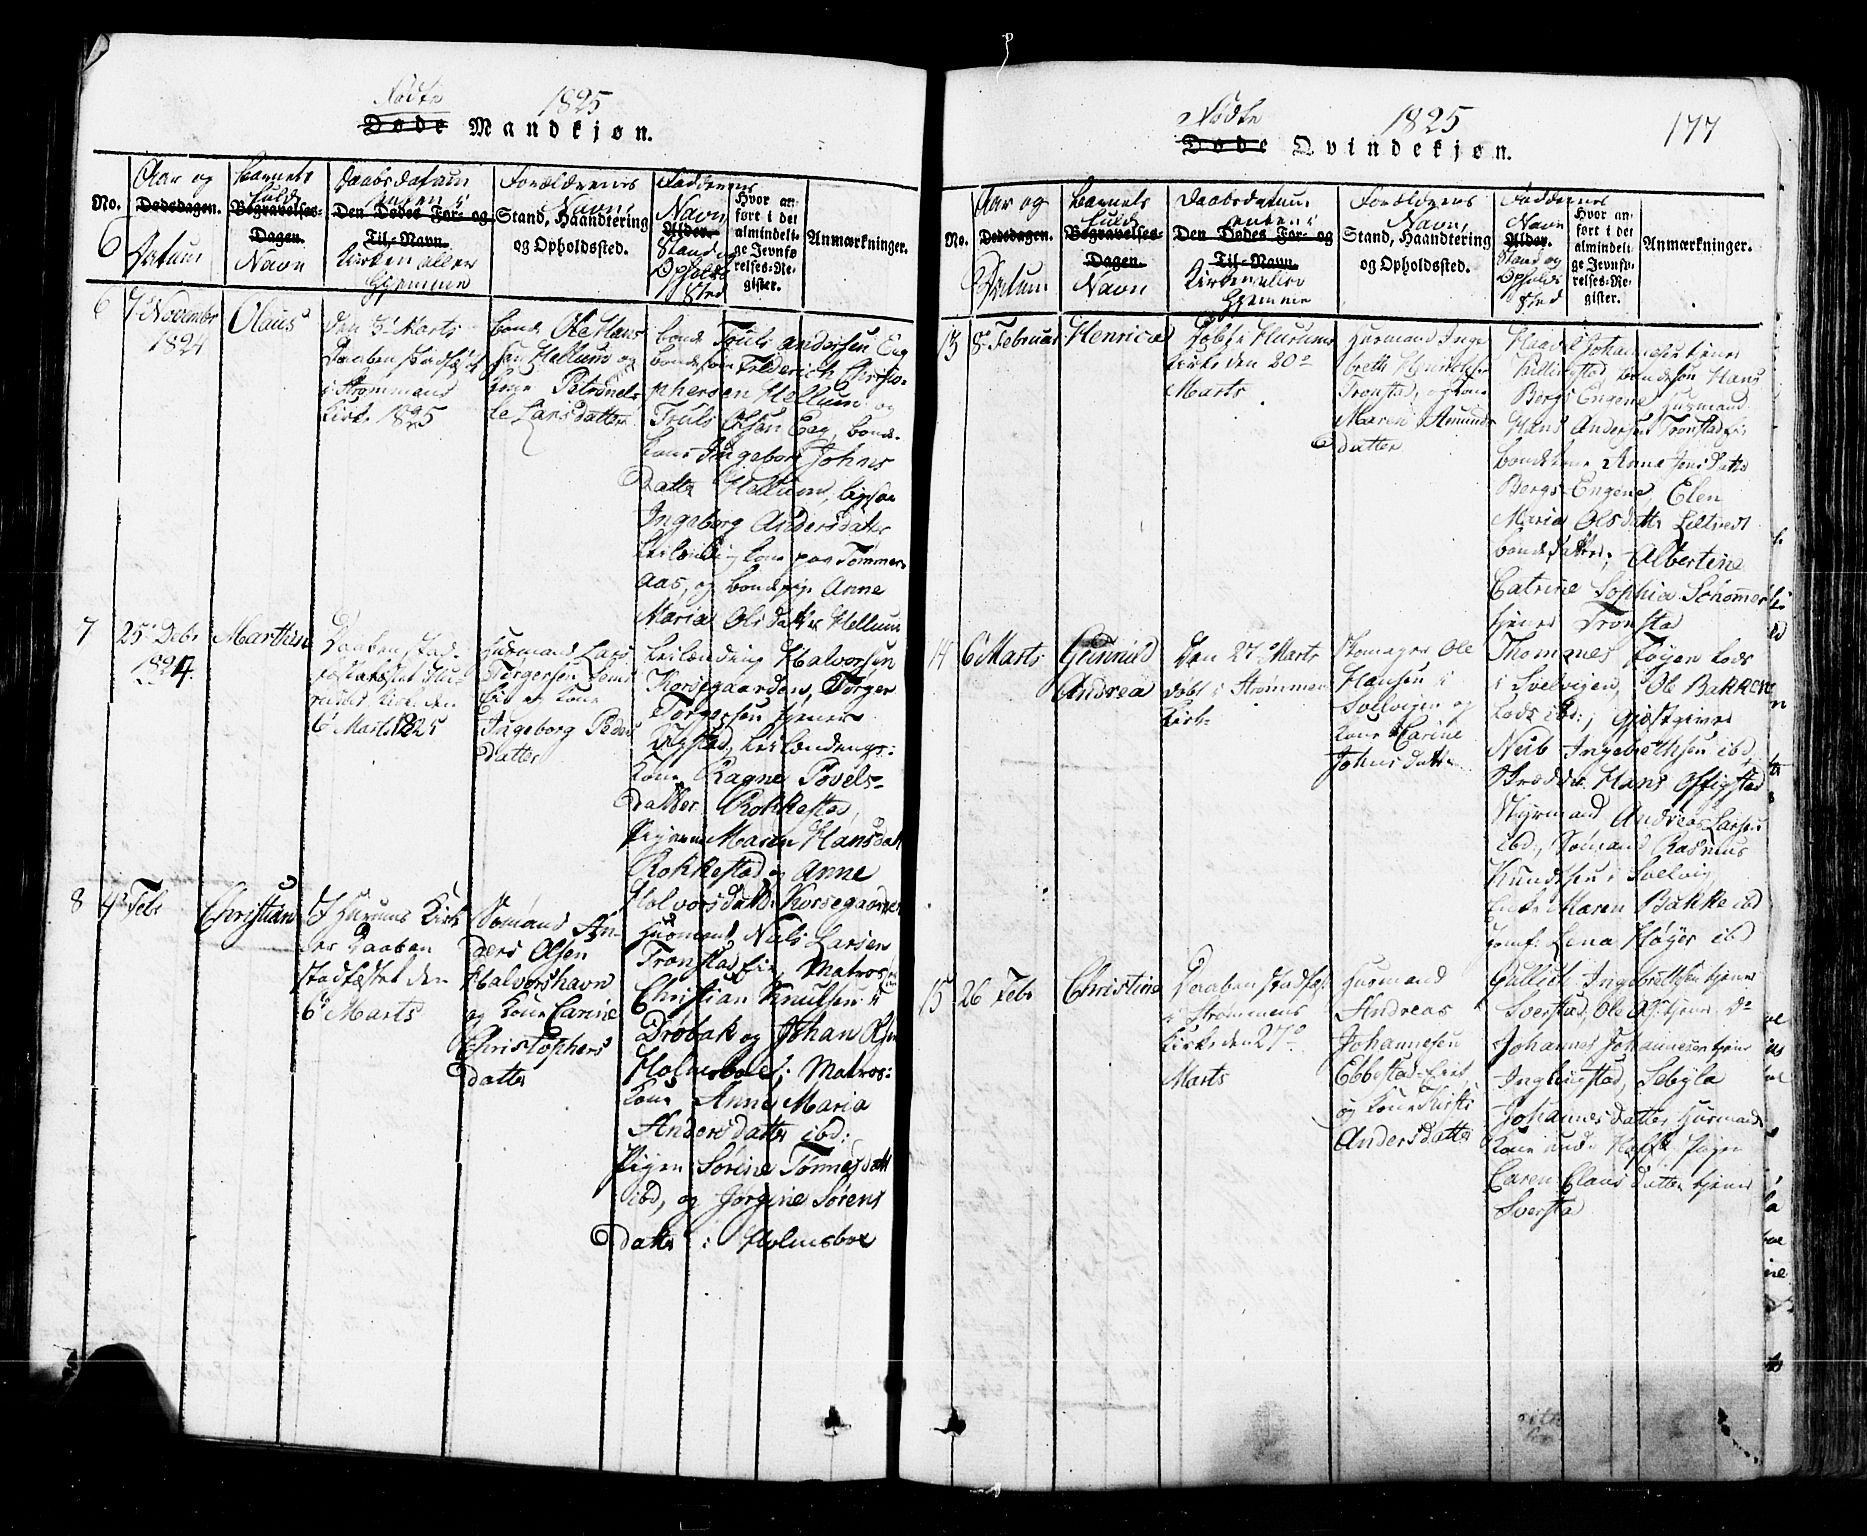 Fødte 1825
Døde Mandkjøn.
No.
Aar og
Dødsdagen.
Datum
Barnets
fulde
Begravelses-
Dagen.
Navn
Daabsdatum
enten i
Den Dødes For- og
Til-Navn.
Kirken eller
Hjemme
Forældrenes
Navn,
Stand, Haandtering
og Opholdssted.
Faddernes
Navn
Alder.
Stand og
Opholds
sted
Hvor an-
ført i det
almindeli-
ge Jevnfø-
relses-Re-
gister.
Anmærkninger.
6
7 November
1824
Olaus
den 6 Marts
Daaben stadfæst
i Strømmens
Kirke 1825
bonde Ole Hans
sen Hellum og
Kone Petronel-
le Larsdatter
bonde Truls Andersen Eeg
bondesøn Frederich Christo-
phersen Hellum og
Truls Olsen Eeg, bonde-
kone Ingeborg Johns
Datter Hellum,
Ingeborg Andersdatter
Leilændings kone paa Tømmer-
aas, og bondepige Anne
Maria Olsdatter Hellum
7
25 Debr
1824.
Marthin
Daaben stad-
fæstet i Hu-
rums Kirke den
6 Marts 1825
Huusmand Lars
Torgersen
Eie og Kone
Ingeborg Peders
datter
Leilænding Halvorsen
Korsegaarden, Torger
Torgersen tjener
Leilændings-
Kone Ragne Povels-
datter Rokkestad,
Pigerne Maren Hansdatt
Rokkestad og Anne
Halvorsdatt Korsegaarden
8
4 Febr
Christian
I Hurums Kirk
er Daaben
stadfæstet den
6 Marts
Sømand An-
ders Olsen
Halvorshavn
og Kone Carine
Christophers
datter
Huusmand Niels Larsen
Tronstad Eie, Matros
Christian Knutsen i
Drøbak og Johan Olsen
Holmsboe; Matros-
kone Anne Maria
Andersdatter ibd:,
Pigen Sorine Tønnesdatt
ibd, og Jørgine Sørens
Datter i Holmsboe
Fødte 1825 177
Døde Qvindekjøn.
No.
Aar og
Dødsdagen.
Datum
Barnets
fulde
Begravelses-
Dagen.
Navn
Daabsdatum
enten i
Den Dødes For- og
Til-Navn.
Kirken eller
Hjemme
Forældrenes
Navn,
Stand, Haandtering
og Opholdssted.
Faddernes
Navn
Alder.
Stand og
Opholds
sted
Hvor an-
ført i det
almindeli-
ge Jevnfø-
relses-Re-
gister.
Anmærkninger.
13
8 Februar
Henrica
Døbt i Hurums
Kirke den 20
Marts
Huusmand Inge
breth Henrichs
Tronstad, og Kone
Maren Amunds
datter
Johannesen tjener
Killingstad bondesøn Hans
Bergs Engene Huusmand
Hans Andersen Tronstad Eie
bondekone Anne Jens Datter
Bergs-Engene, Elen
Maria Olsdatter Liltvedt
bondedatter; Albertine
Catrine Sophia Schømer
tjener Tronsta
14
6 Marts
Gunnild
Andrea
den 27 Marts
døbt i Strømmens
Kirke
Skomager Ole
Hansen i
Svelvigen og
Kone Karine
Johnsdatter
Thommes Høyer Lods
i Svelvigen, Ol: Bakken
Lods ibd:, Gjæstgiver
Niels Ingebrethsen ibd,
Skrædder Hans
Styrmand Andreas Larsen
ibd:, Sømand Rasmus
Knudsen i Svelvig
Enke Maren Bakke ibd
Jomf: Lena Høyer ibd
15
26 Febr
Christine
Daaben stadfæst
i Strømmens
Kirke den 27
Marts
Huusmand
Andreas
Johannesen
Ebbestad-Eiet
og Kone Kirsti
Andersdatter
Gullich Ingebrethsen tjener
Sverstad, Ole Ols: tjener D
Johannes Johannesen tjener
Inglingstad, Sebylla
Johannesdatter Huusmands
Kone Pigen
Caren Clausdatter tjener
Sversta